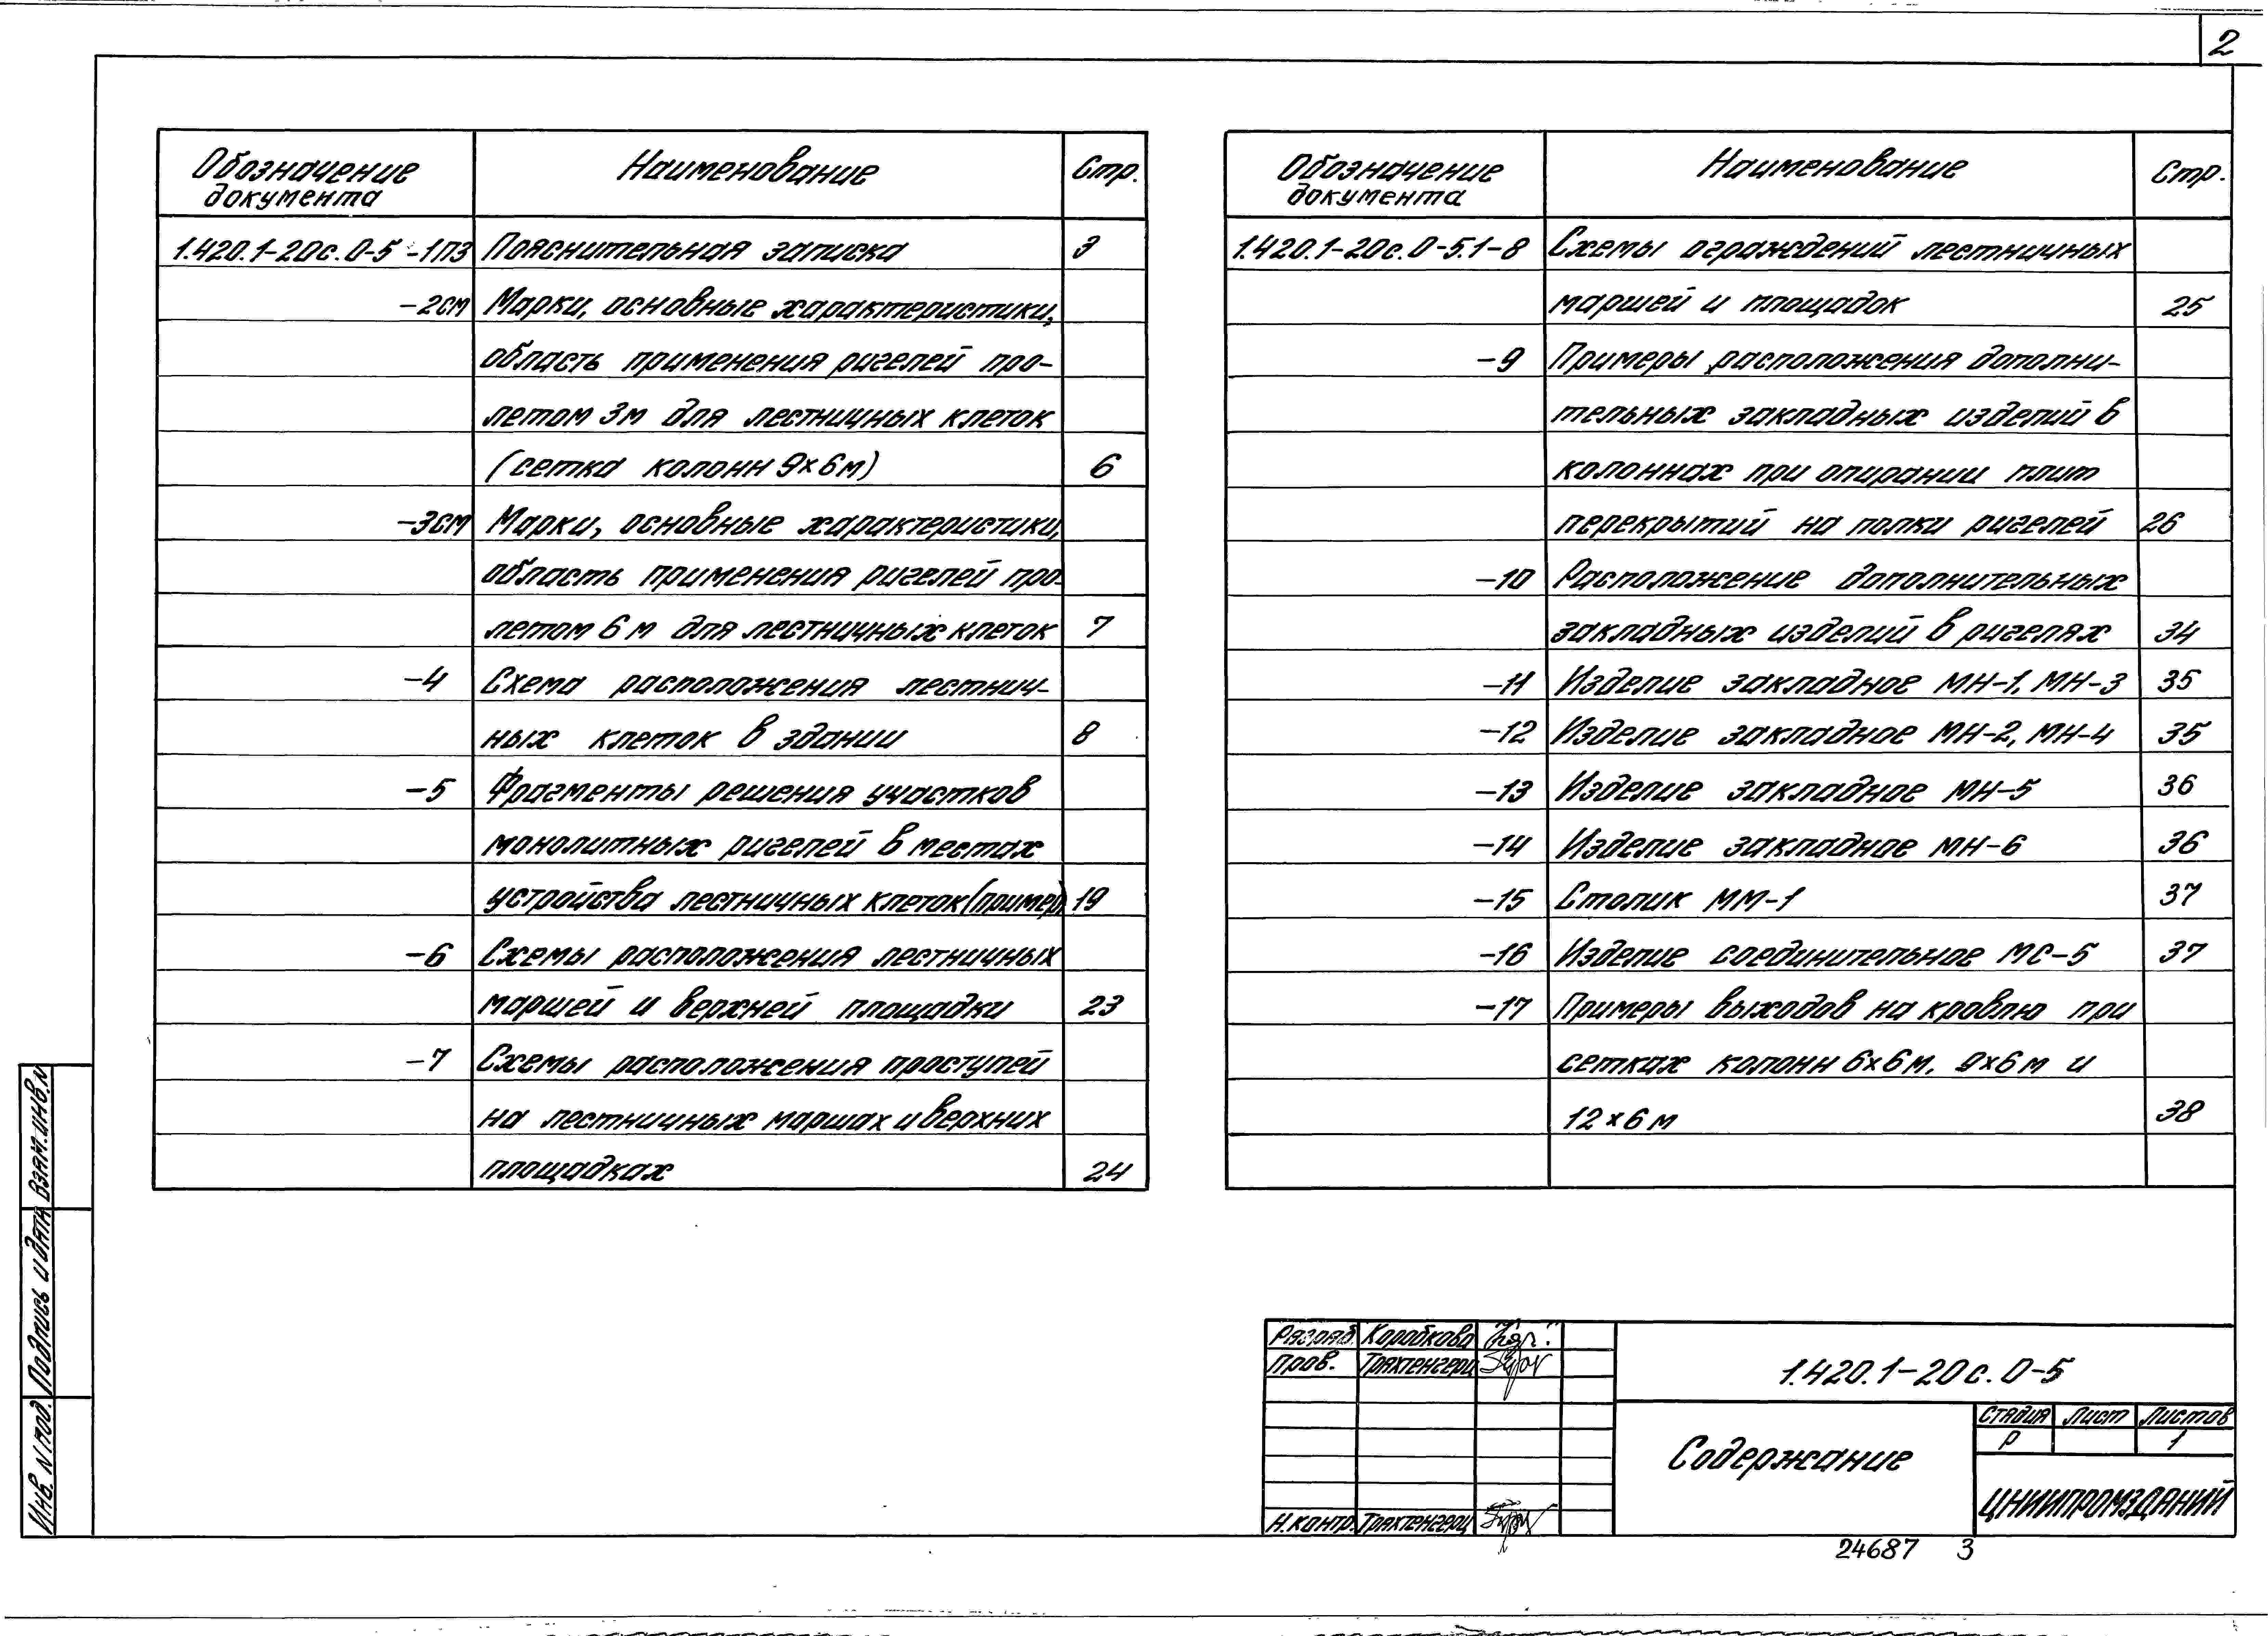 2
Обозначение документа Наименование Стр.
1.420.1-20с.0-5 -1ПЗ Пояснительная записка 3
-2см Марки, основные характеристики,
область применения ригелей про-
летом 3м для лестничных клеток
(сетка колонн 9×6м) 6
-3см Марки, основные характеристики,
область применения ригелей про-
летом 6 м для лестничных клеток 7
-4 Схема расположения лестнич-
ных клеток в здании 8
-5 Фрагменты решения участков
монолитных ригелей в местах
устройства лестничных клеток (пример) 19
-6 Схемы расположения лестничных
маршей и верхней площадки 23
-7 Схемы расположения проступей
на лестничных маршах и верхних
площадках 24
Обозначение документа Наименование Стр.
1.420.1-20с.0-5.1-8 Схемы ограждений лестничных
маршей и площадок 25
-9 Примеры расположения дополни-
тельных закладных изделий в
колоннах при опирании плит
перекрытий на полки ригелей 26
-10 Расположение дополнительных
закладных изделий в ригелях 34
-11 Изделие закладное МН-1, МН-3 35
-12 Изделие закладное МН-2, МН-4 35
-13 Изделие закладное МН-5 36
-14 Изделие закладное МН-6 36
-15 Столик ММ-1 37
-16 Изделие соединительное МС-5 37
-17 Примеры выходов на кровлю при
сетках колонн 6×6м, 9×6м и
12×6м 38
Взам.инв.№
Подпись и дата
Инв. № под.
Разраб. Коробкова
Пров. Трахтенгерц
Н.контр. Трахтенгерц
1.420.1-20с.0-5
Содержание
Стадия Лист Листов
Р 1
ЦНИИПРОМЗДАНИЙ
24687 3